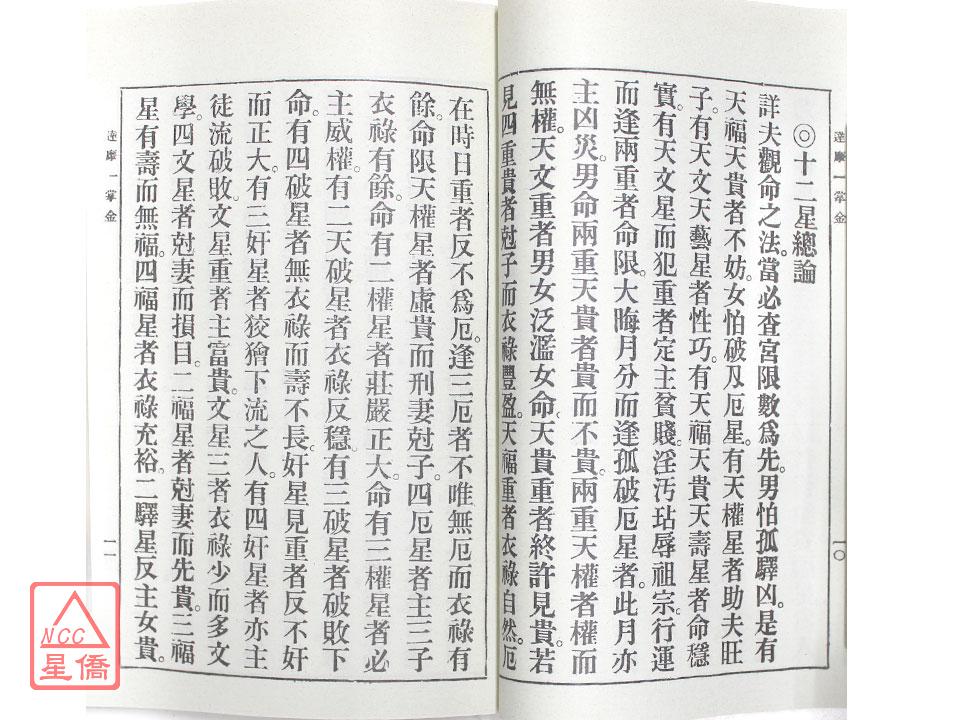 達摩一掌金
◎十二星總論
詳夫觀命之法。當必查宮限數爲先。男怕孤驛凶。是有
天福天貴者不妨。女怕破及厄星。有天權星者助夫旺
子。有天文天藝星者性巧。有天福天貴天壽星者命穩
實。有天文星而犯重者定主貧賤。淫汚玷辱祖宗。行運
而逢兩重者命限。大晦月分而逢孤破厄星者。此月亦
主凶災。男命兩重天貴者貴而不貴。兩重天權者權而
無權。天文重者男女泛濫女命。天貴重者終許見貴。若
見四重貴者尅子而衣祿豐盈。天福重者衣祿自然。厄
一〇
在時日重者反不爲厄。逢三厄者不唯無厄而衣祿有
餘。命限天權星者虛貴而刑妻尅子。四厄星者主三子
衣祿有餘。命有二權星者莊嚴正大。命有三權星者必
主威權。有二天破星者衣祿反穩。有三破星者破敗下
命。有四破星者無衣祿而壽不長。奸星見重者反不奸
而正大。有三奸星者狡獪下流之人。有四奸星者亦主
徒流破敗。文星重者主富貴。文星三者衣祿少而多文
學。四文星者尅妻而損目。二福星者尅妻而先貴。三福
星有壽而無福。四福星者衣祿充裕。二驛星反主女貴。
達摩一掌金
一一
NCC
星僑